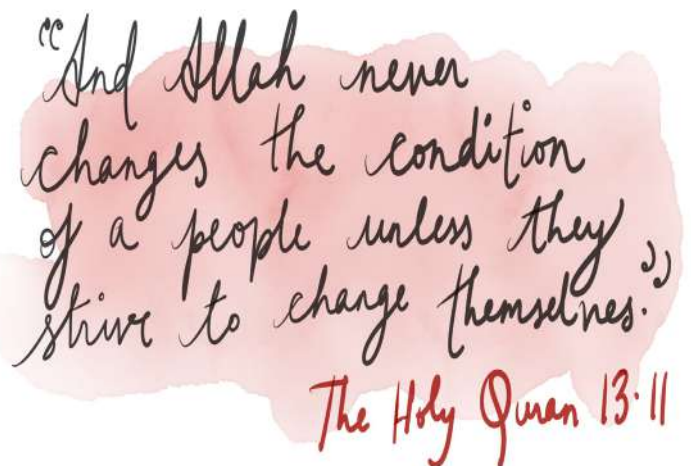 “And Allah never
changes the condition
of a people unless they
strive to change themselves.”
The Holy Quran 13.11